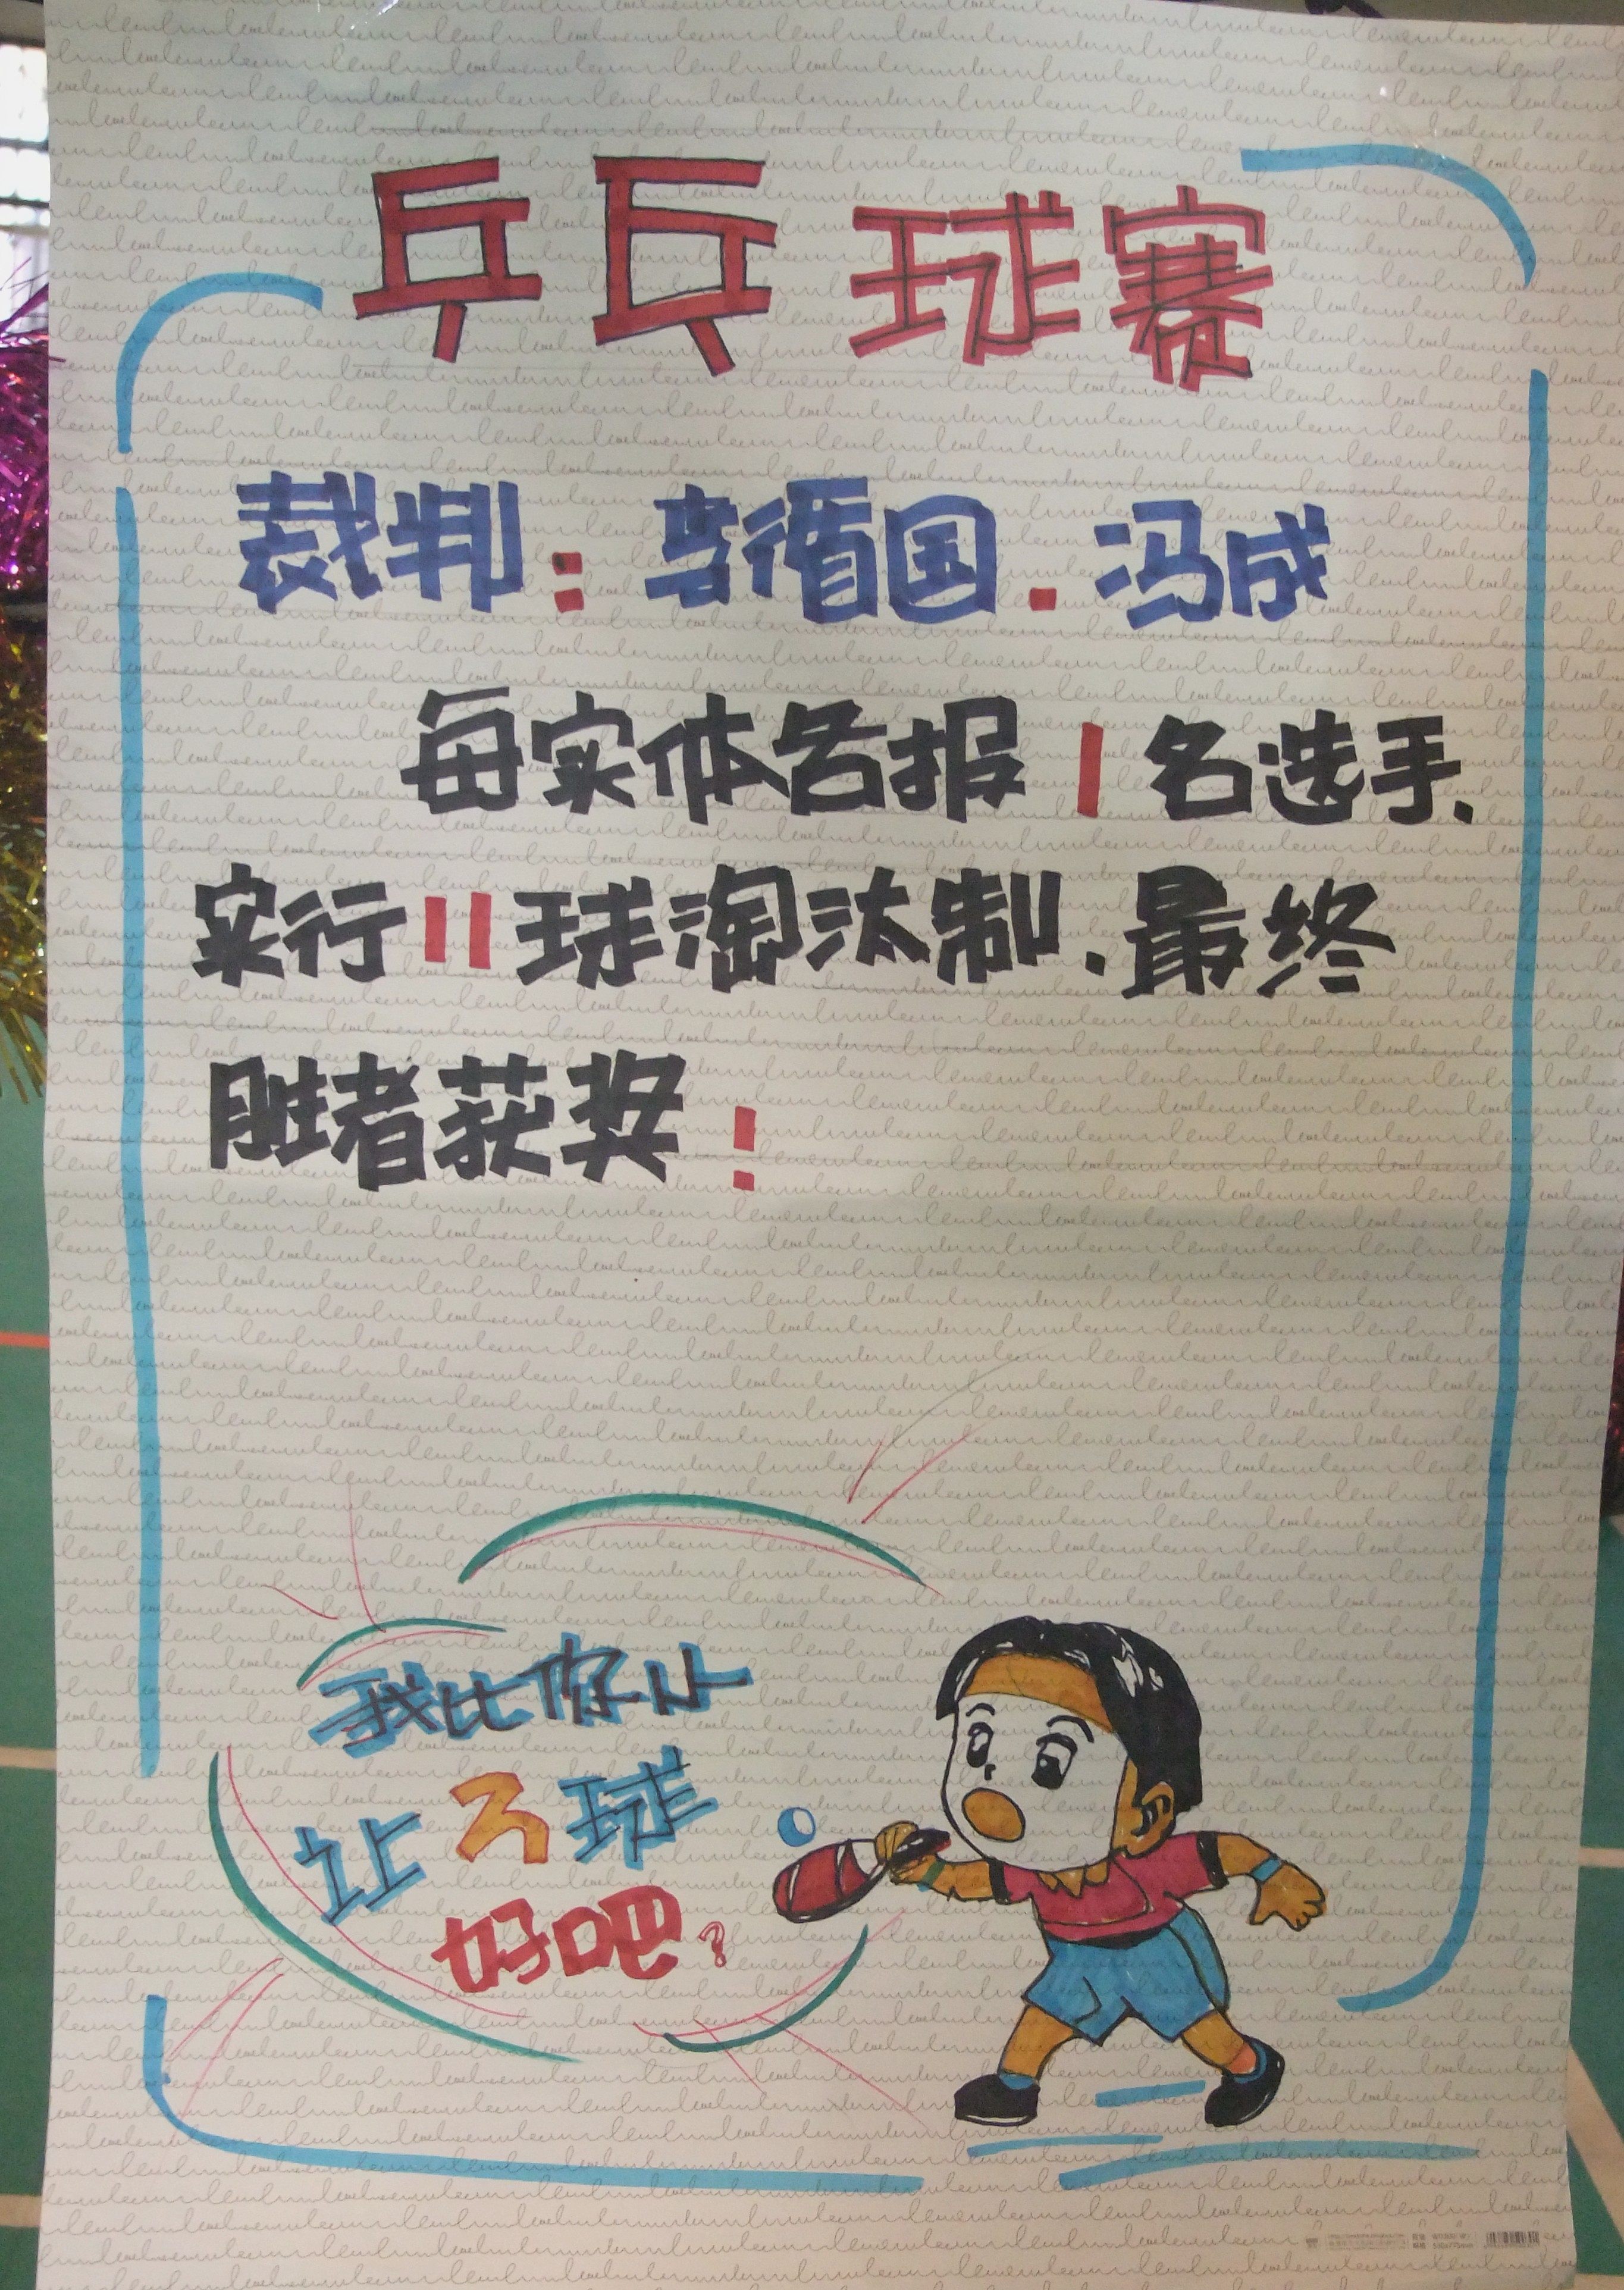 乒乓球赛
裁判:李循国.冯成
每实体各报1名选手.
实行11球淘汰制.最终
胜者获奖!
我比你小
让3球
好吧?